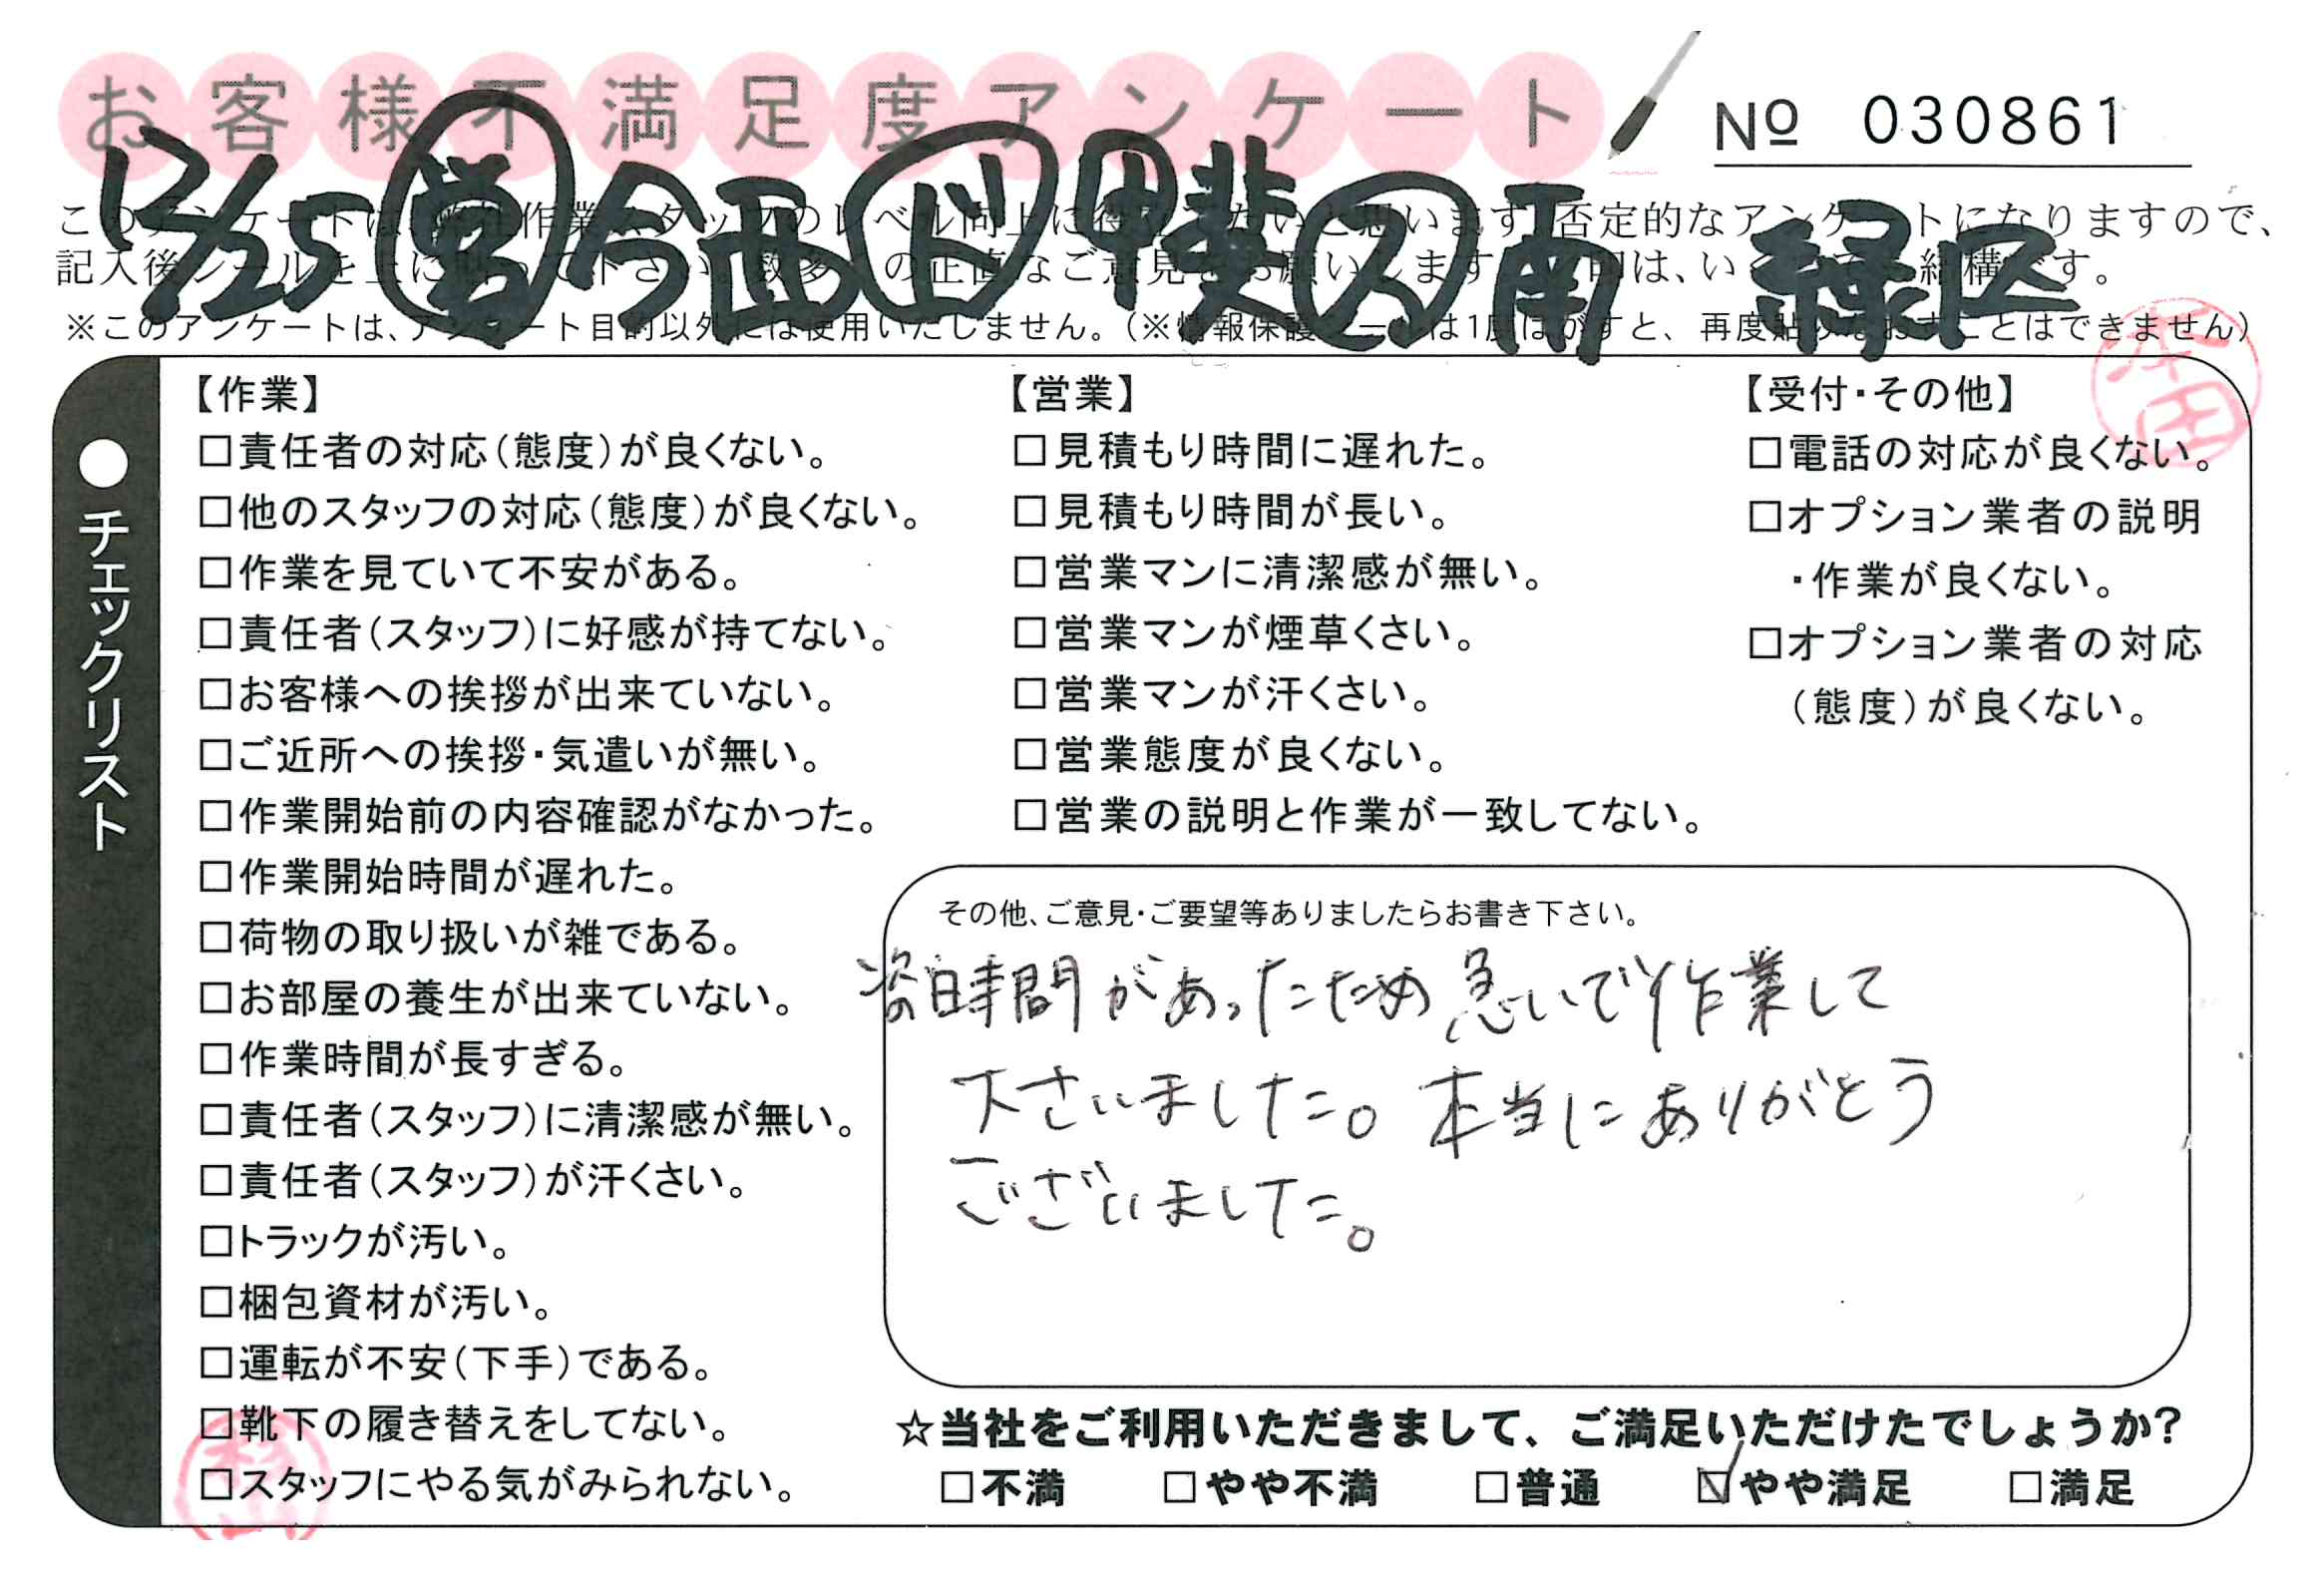 お客様不満足度アンケート
№ 030861
12/25 営 今西 ド 甲斐 ス 南 緑区
記入後シールを上に貼って下さい。数多くの正直なご意見をお願いします。
※このアンケートは、アンケート目的以外には使用いたしません。（※情報保護シールは1度はがすと、再度貼りなおすことはできません）
●チェックリスト
【作業】
□責任者の対応（態度）が良くない。
□他のスタッフの対応（態度）が良くない。
□作業を見ていて不安がある。
□責任者（スタッフ）に好感が持てない。
□お客様への挨拶が出来ていない。
□ご近所への挨拶・気遣いが無い。
□作業開始前の内容確認がなかった。
□作業開始時間が遅れた。
□荷物の取り扱いが雑である。
□お部屋の養生が出来ていない。
□作業時間が長すぎる。
□責任者（スタッフ）に清潔感が無い。
□責任者（スタッフ）が汗くさい。
□トラックが汚い。
□梱包資材が汚い。
□運転が不安（下手）である。
□靴下の履き替えをしてない。
□スタッフにやる気がみられない。
【営業】
□見積もり時間に遅れた。
□見積もり時間が長い。
□営業マンに清潔感が無い。
□営業マンが煙草くさい。
□営業マンが汗くさい。
□営業態度が良くない。
□営業の説明と作業が一致してない。
【受付・その他】
□電話の対応が良くない。
□オプション業者の説明
・作業が良くない。
□オプション業者の対応
（態度）が良くない。
その他、ご意見・ご要望等ありましたらお書き下さい。
時間があったため急いで作業して
下さいました。本当にありがとう
ございました。
☆当社をご利用いただきまして、ご満足いただけたでしょうか?
□不満 □やや不満 □普通 ☑やや満足 □満足